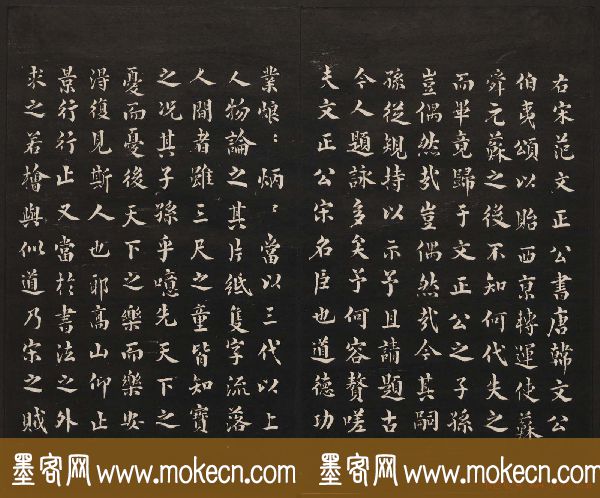 右宋范文正公書唐韓文公
伯夷頌以貽西京轉運使蘇
舜元蘇之後不知何代失之
而畢竟歸于文正公之子孫
豈偶然哉豈偶然哉今其嗣
孫從規持以示予且請題古
今人題詠多矣予何容贅嗟
夫文正公宋名臣也道德功
業烺：炳：當以三代以上
人物論之其片紙隻字流落
人間者雖三尺之童皆知寶
之况其子孫乎噫先天下之
憂而憂後天下之樂而樂安
得復見斯人也耶高山仰止
景行行止又當於書法之外
求之若檜與似道乃宋之賊
墨客网 www.mokecn.com
墨客网 www.mokecn.com